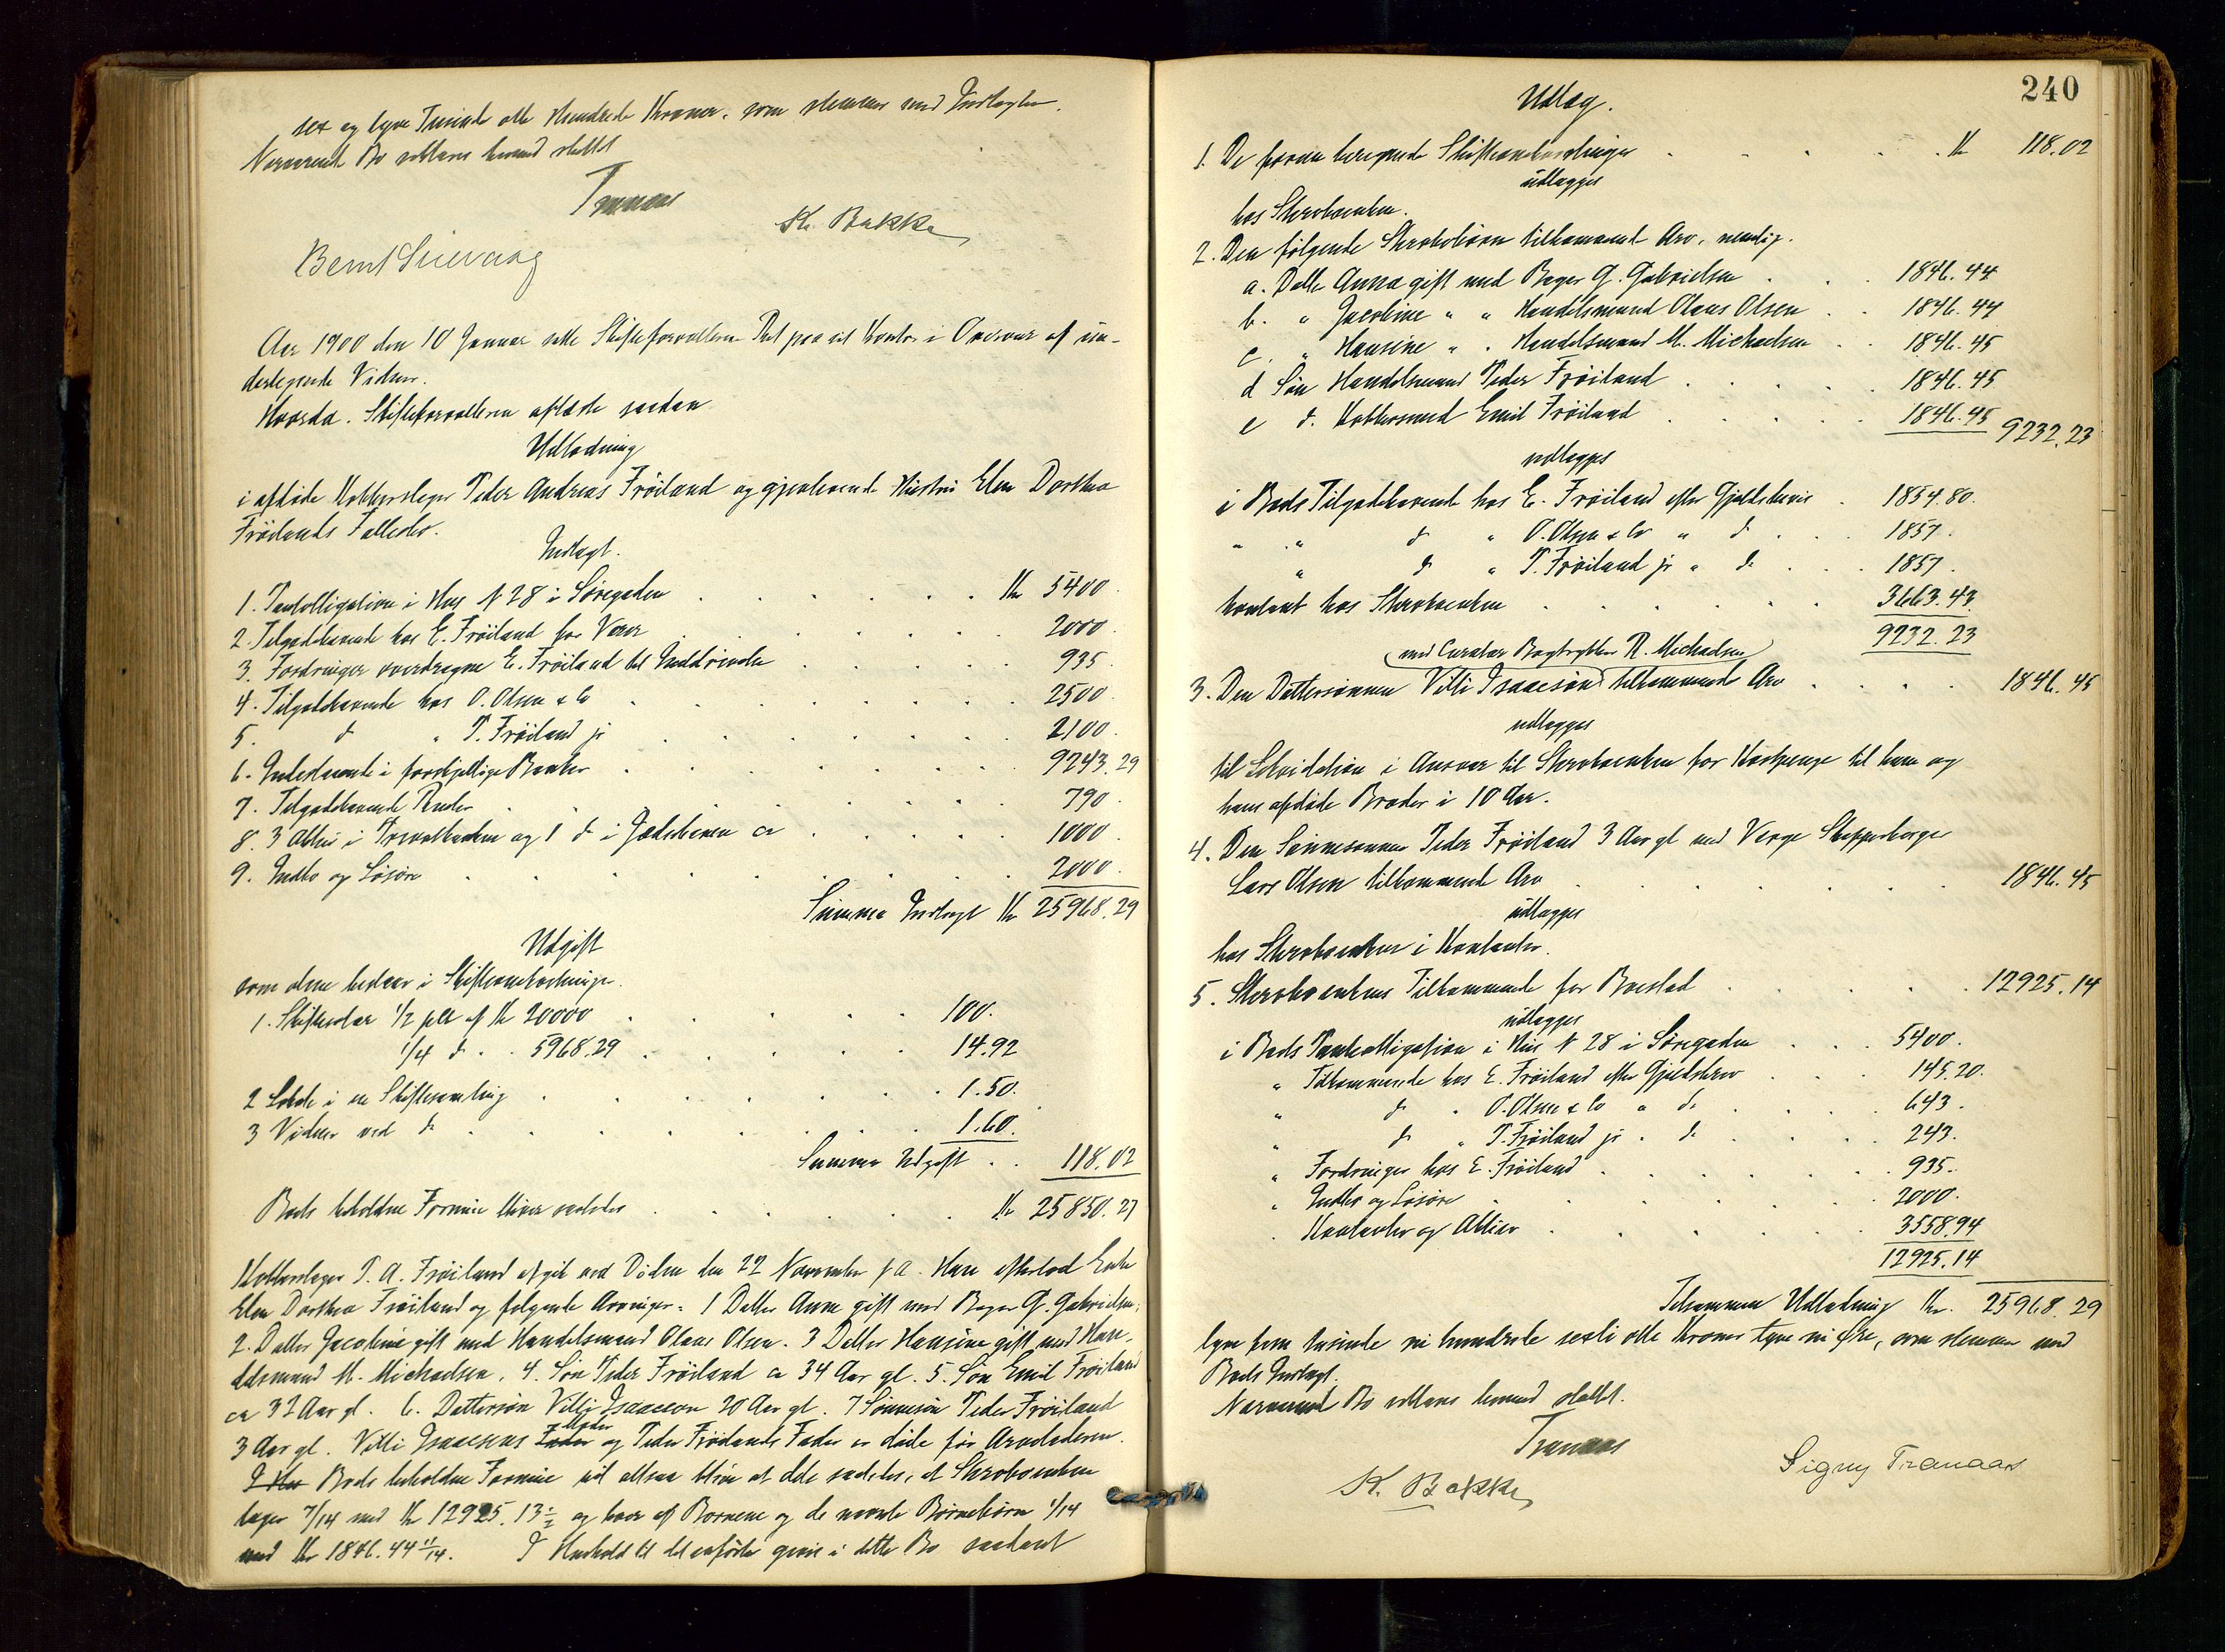 sex og tyve Tusinde otte Hundrede Kroner, som stemmer med Indtægten.
Nærværende Bo erklæres hermed sluttet
Tranaas
K. Bakke
Bernt Sievaag
Aar 1900 den 10 Januar satte Skifteforvalteren Ret paa sit Kontor i Overvær af un-
dertegnede Vidner.
Hvorda. Skifteforvalteren afsluttede saadan
Udlodning
i afdøde Kobberslager Peder Andreas Frøiland og gjenlevende Hustru Elen Dorthea
Frøilands Fællesbo.
Indtægt.
1. Panteobligation i Hus N 28 i Søregaden Kr 5400.
2. Tilgodehavende hos E. Frøiland for Varer 2000.
3. Fordringer overdragne E. Frøiland til Inddrivelse 935.
4. Tilgodehavende hos O. Olsen & Co 2500.
5. do " P. Frøiland jr 2100.
6. Indestaaende i forskjellige Banker 9243.29
7. Tilgodehavende Renter 790.
8. 3 Aktier i Privatbanken og 1 do i Jæderbanen ca 1000.
9. Indbo og Løsøre 2000.
Summa Indtægt Kr 25968.29
Udgift
som alene bestaar i Skifteomkostninger.
1. Skiftesalær 1/2 pct af Kr 20000 100.
1/4 do . . 5968.29 14.92
2 Lokale i en Skiftesamling 1.50.
3 Vidner ved do 1.60.
Summa Udgift . . 118.02
Boets beholdne Formue bliver saaledes Kr 25850.27
Kobberslager P. A. Frøiland afgik ved Døden den 22 November f.a. Han efterlod Enke
Elen Dorthea Frøiland og følgende Arvinger: 1 Datter Anna gift med Bager G. Gabrielsen,
2. Datter Jacobine gift med Handelsmand Olaus Olsen. 3 Datter Hansine gift med Han-
delsmand M. Michaelsen, 4. Søn Peder Frøiland ca 34 Aar gl. 5. Søn Emil Frøiland
ca 32 Aar gl. 6. Dattersøn Villi Isaacson 20 Aar gl. 7 Sønnesøn Peder Frøiland
3 Aar gl. Villi Isaacsons Fader Moder og Peder Frøilands Fader er døde før Arveladeren.
Boets beholdne Formue vil altsaa blive at dele saaledes, at Sterboenken
tager 7/14 med Kr 12925.13 1/2 og hver af Børnene og de nævnte Børnebørn 1/14
med Kr 1846.44 11/14. I Henhold til det anførte gives i dette Bo saadant
240
Udlæg.
1. De foran beregnede Skifteomkostninger Kr 118.02
udlægges
hos Sterboenken.
2. Den følgende Sterbobørn tilkommende Arv, nemlig.
a. Datter Anna gift med Bager G. Gabrielsen 1846.44
b. " Jacobine " " Handelsmand Olaus Olsen 1846.44
c. " Hansine " " Handelsmand M. Michaelsen 1846.45
d Søn Handelsmand Peder Frøiland 1846.45
e do. Kobbersmed Emil Frøiland 1846.45 9232.23
udlægges
i Boets Tilgodehavende hos E. Frøiland efter Gjeldsbevis 1854.80.
" " do " O. Olsen & Co " do 1857.
" do " P. Frøiland jr " do 1857.
kontant hos Sterboenken 3663.43
9232.23
(med Curator Bogtrykker R. Michaelsen)
3. Den Dattersønnen Villi Isaacson tilkommende Arv 1846.45
udlægges
til Likvidation i Ansvar til Sterboenken for Kostpenge til ham og
hans afdøde Broder i 10 Aar.
4. Den Sønnesønnen Peder Frøiland 3 Aar gl med Verge Skibsbygger
Lars Olsen tilkommende Arv 1846.45
udlægges
hos Sterboenken i Kontanter.
5. Sterboenkens Tilkommende for Boeslod 12925.14
udlægges
i Boets Panteobligation i Hus N 28 i Søregaden 5400.
" Tilkommende hos E. Frøiland efter Gjeldsbrev 145.20.
" do " O. Olsen & Co " do 643.
" do " P. Frøiland jr . do 243.
" Fordringer hos E. Frøiland 935.
" Indbo og Løsøre 2000.
. Kontanter og Aktier 3558.94
12925.14
Tilsammen Udlodning Kr. 25968.29
tyve fem tusinde ni hundrede sexti otte Kroner tyve ni Øre, som stemmer med
Boets Indtægt.
Nærværende Bo erklæres hermed sluttet.
Tranaas
K. Bakke
Signy Tranaas